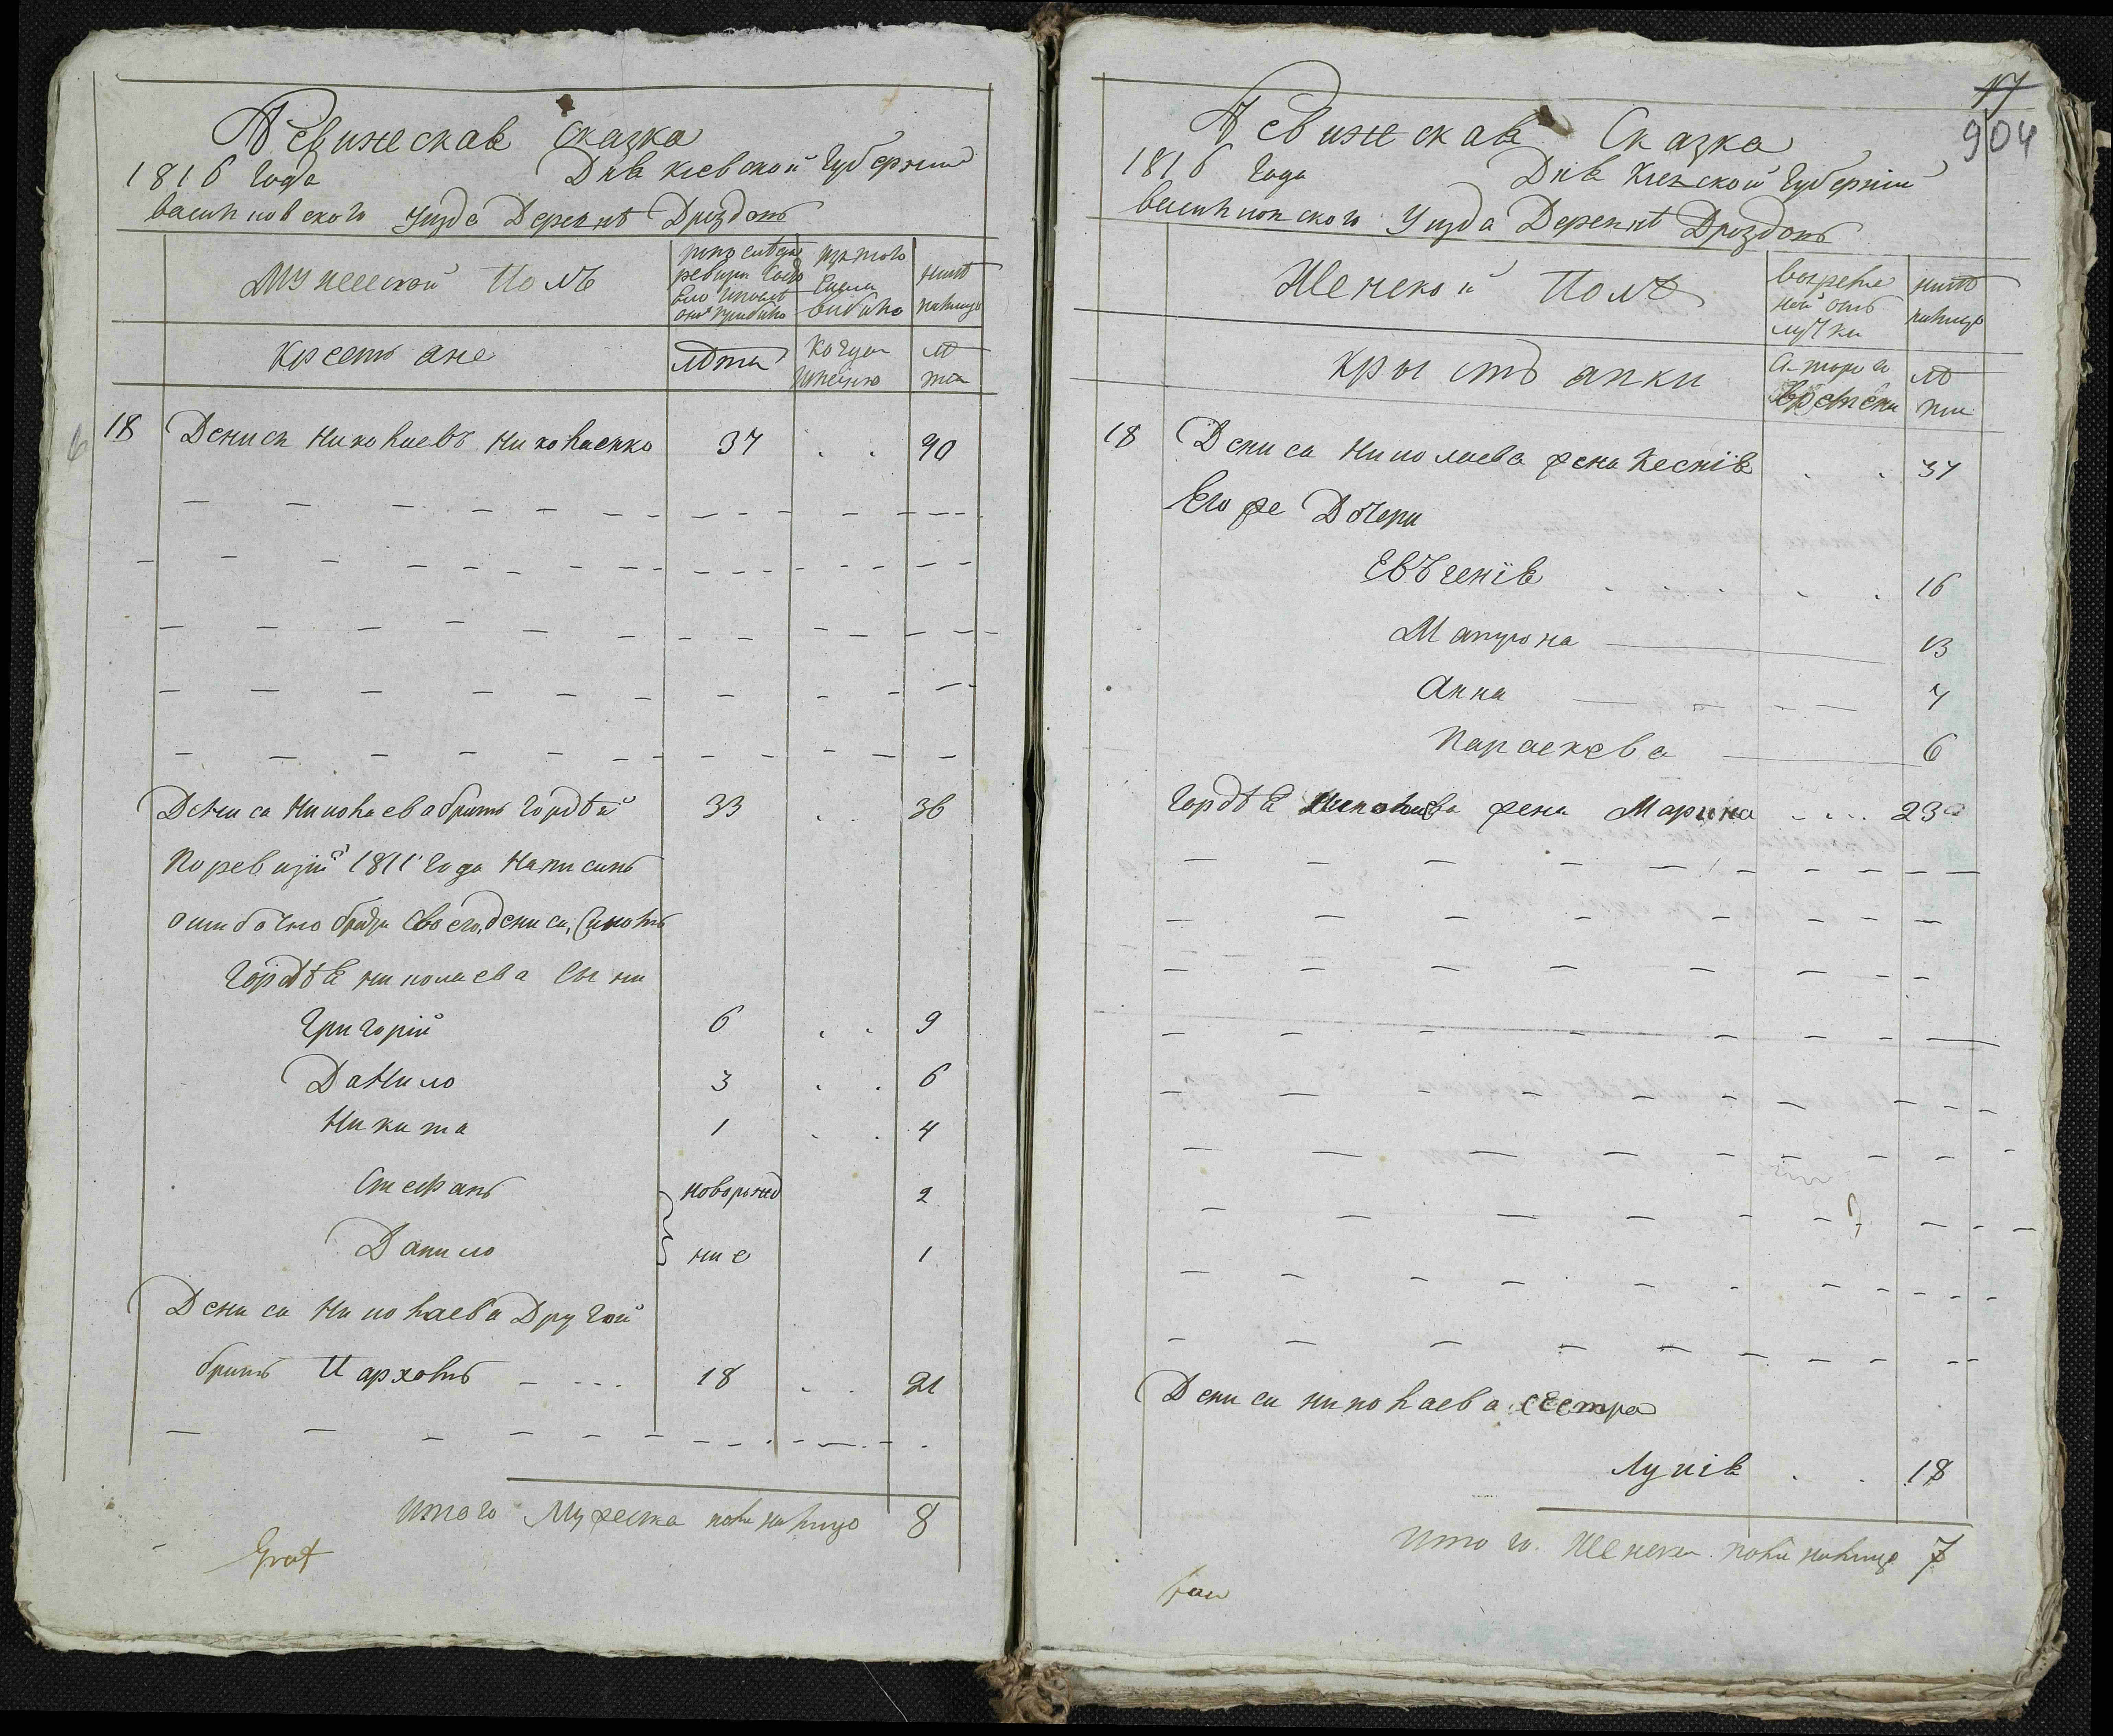 Ревижская сказка
1816 года Дня киевской Губернии
васильковского уизда Деревнѣ Дрозdовъ
Мужеский Полъ
ныне
налицо
Крестьяне
лѣта
когда
имянно
лѣ
та
18 Денисъ Николаевъ Николаенко 37 . . 40
Дениса Николаева братъ Гордѣй 33 . . 36
По ревизіи 1811 года написанъ
ошибочно брата своего, Дениса, синомъ
Гордѣя николаева сыни
Григорій 6 . . 9
Данило 3 . . 6
Никита 1 . . 4
Стефанъ новорожд 2
Данило ние 1
Дениса Николаева Другой
братъ Пархомъ 18 . . 21
Итого Мужеска пола налицо 8
17
904
Ревижская Сказка
1816 Года Дня Киевской Губерніи
васильковского Уизда Деревнѣ Дрозdовъ
Женской Полъ
во време
ной отъ
лучки
ныне
налицо
Крыстянки
с которого
времени
лѣ
та
18 Дениса Николаева жена Ксенія . . 37
Его же Дочери
Евъгенія 16
Матрона 13
Анна 7
Параскева 6
Гордѣя Николаева жена Марина 23
Дениса николаева сестра
Лукія . . 18
Итого Женска пола налице 7